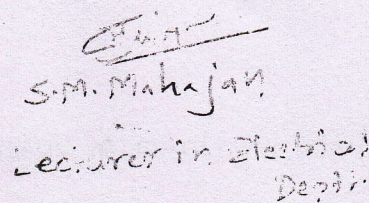 S.M. Mahajan
Lecturer in Electrical
Deptt.